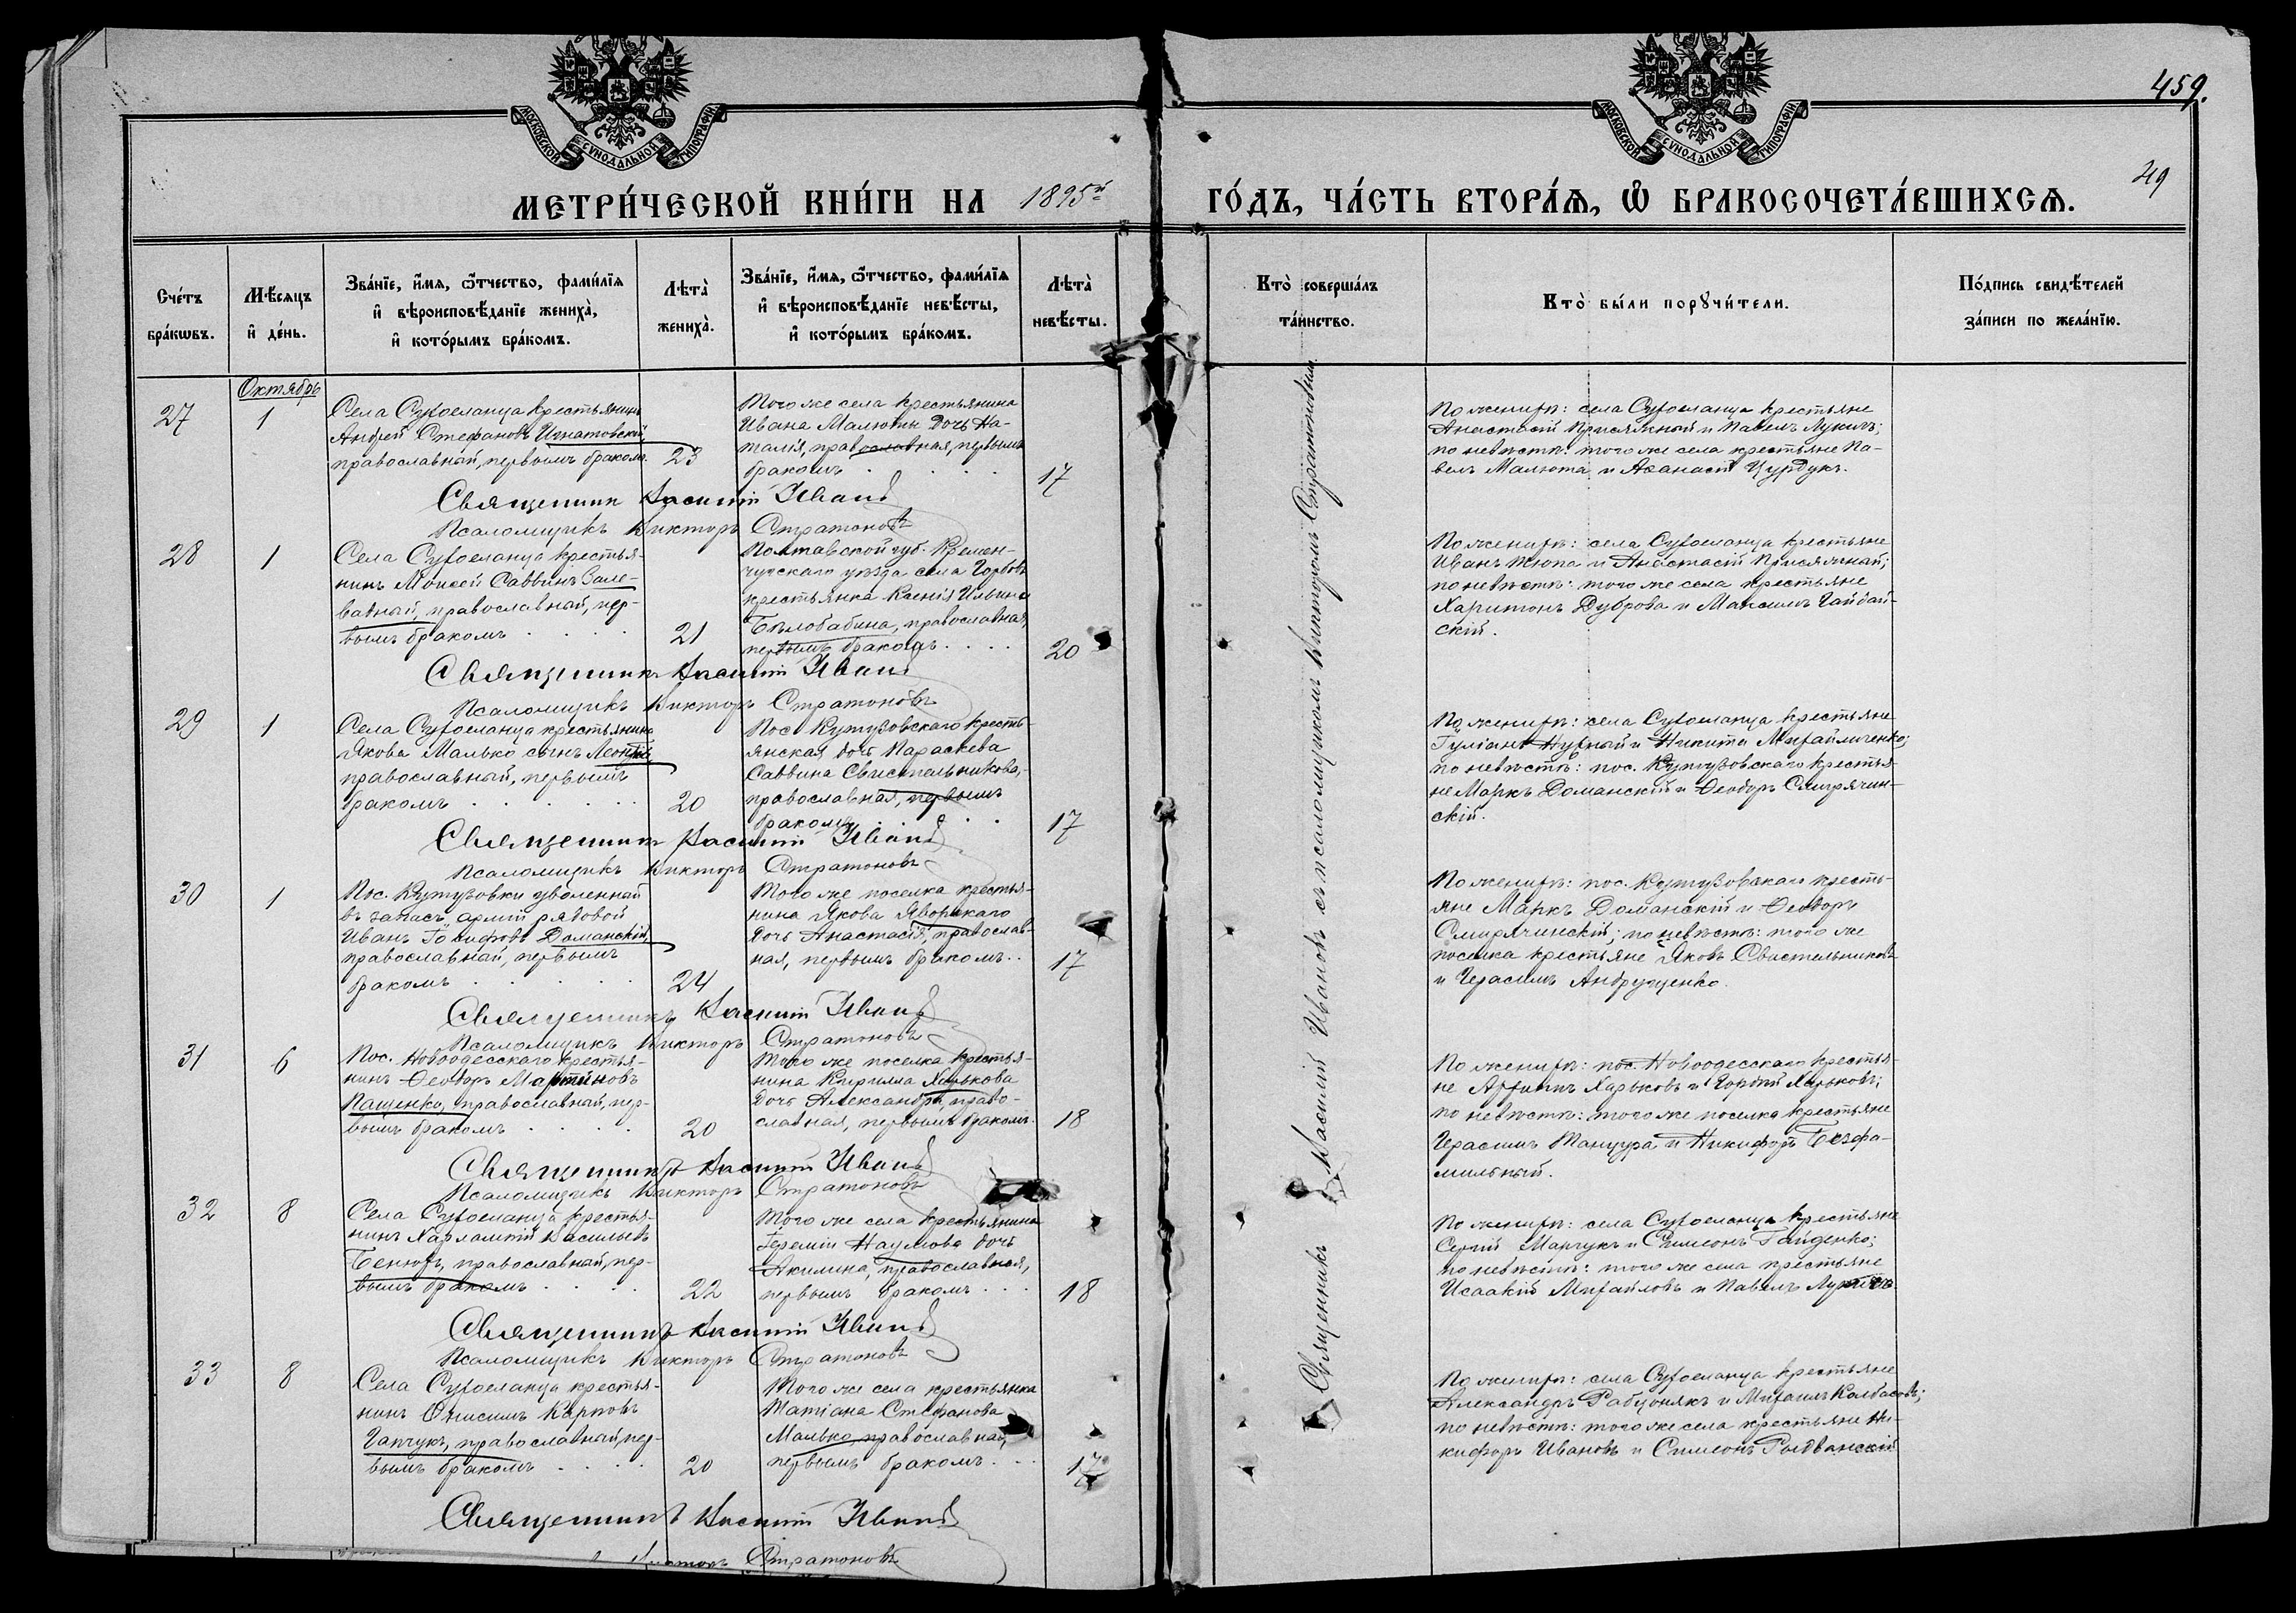 МОСКОВСКОЙ СѴНОДАЛЬНОЙ ТИПОГРАФІИ
МОСКОВСКОЙ СѴНОДАЛЬНОЙ ТИПОГРАФІИ
459.
49
МЕТРИ́ЧЕСКОЙ КНИ́ГИ НА 1895й ГО́ДЪ, ЧА́СТЬ ВТОРА́Ѧ, Ѡ҆ БРАКОСОЧЕТА́ВШИХСѦ.
Сче́тъ
бра́кѡвъ.
Мѣ́сяцъ
и҆ де́нь.
Зва́нїе, и҆́мя, ѻ҆́тчество, фами́лїя
и҆ вѣроисповѣ́данїе жениха̀,
и҆ кото́рымъ бра́комъ.
Лѣта̀
жениха̀.
Зва́нїе, и҆́мя, ѻ҆́тчество, фами́лїя
и҆ вѣроисповѣ́данїе невѣ́сты,
и҆ кото́рымъ бра́комъ.
Лѣта̀
невѣ́сты.
Кто̀ соверша́лъ
та́инство.
Кто̀ бы́ли порꙋчи́тели.
По́дпись свидѣ́телей
за́писи по жела́нїю.
Октябрь
27
1
Села Сухоеланца крестьянинъ
Андрей Стефановъ Игнатовскій,
православный, первымъ бракомъ.
23
Того же села крестьянина
Ивана Малюты дочь На-
талія, православная, первымъ
бракомъ . . .
17
По женихѣ: села Сухоеланца крестьяне
Анастасій Присяжный и Павелъ
по невѣстѣ: того же села крестьяне Па-
велъ Малюта и Аѳанасій Цурдукъ.
Священникъ Василій Ивановъ
Псаломщикъ Викторъ Стратоновъ
28
1
Села Сухоеланца крестья-
нинъ Моисей Саввинъ Зале-
ваный, православный, пер-
вымъ бракомъ . . . .
21
Полтавской губ. Кремен-
чугскаго уѣзда села
крестьянка Ксенія Ильина
Бѣлобабина, православная,
первымъ бракомъ . . . .
20
По женихѣ: села Сухоеланца крестьяне
Иванъ Тюпа и Анастасій Присяжный;
по невѣстѣ: того же села крестьяне
Харитонъ Дуброва и Максимъ Гайдай-
скій.
Священникъ Василій Ивановъ
Псаломщикъ Викторъ Стратоновъ
29
1
Села Сухоеланца крестьянина
Якова Малько сынъ Леонтій,
православный, первымъ
бракомъ . . . . . .
20
Пос. Кутузовскаго кресть-
янская дочь Параскева
Саввина Свистельникова,
православная, первымъ
бракомъ . . . .
17
По женихѣ: села Сухоеланца крестьяне
Іуліанъ Нужный и Никита Михайличенко;
по невѣстѣ: пос. Кутузовскаго крестья-
не Маркъ Доманскій и Ѳеодоръ Смирячин-
скій.
Священникъ Василій Ивановъ
Псаломщикъ Викторъ Стратоновъ
30
1
Пос. Кутузовки уволенный
въ запасъ арміи рядовой
Иванъ Іосифовъ Доманскій,
православный, первымъ
бракомъ . . . . .
24
Того же поселка крестья-
нина Якова Яворскаго
дочь Анастасія, православ-
ная, первымъ бракомъ . .
17
По женихѣ: пос. Кутузовскаго кресть-
яне Маркъ Доманскій и Ѳеодоръ
Смирячинскій; по невѣстѣ: того же
поселка крестьяне Яковъ Свистельниковъ
и Герасимъ Андрущенко.
Священникъ Василій Ивановъ
Псаломщикъ Викторъ Стратоновъ
31
6
Пос. Новоодесскаго крестья-
нинъ Ѳеодоръ Мартиновъ
Пащенко, православный, пер-
вымъ бракомъ . . . .
20
Того же поселка крестья-
нина Кирилла Харькова
дочь Александра, право-
славная, первымъ бракомъ.
18
По женихѣ: пос. Новоодесскаго крестья-
не Архипъ Харьковъ и Гордій Харьковъ;
по невѣстѣ: того же поселка крестьяне
Герасимъ Манцура и Никифоръ Безфа-
мильный.
Священникъ Василій Ивановъ
Псаломщикъ Викторъ Стратоновъ
32
8
Села Сухоеланца крестья-
нинъ Харлампій Васильевъ
Бенюхъ, православный, пер-
вымъ бракомъ . . . .
22
Того же села крестьянина
Іереміи Наумова дочь
Акилина, православная,
первымъ бракомъ . . .
18
По женихѣ: села Сухоеланца крестьяне
Сергій Марчукъ и Симеонъ Гайденко;
по невѣстѣ: того же села крестьяне
Исаакій Михайловъ и Павелъ
Священникъ Василій Ивановъ
Псаломщикъ Викторъ Стратоновъ
33
8
Села Сухоеланца крестья-
нинъ Онисимъ Карповъ
Гапчукъ, православный, пер-
вымъ бракомъ . . . .
20
Того же села крестьянка
Татіана Стефанова
Малько, православная,
первымъ бракомъ . . .
17
По женихѣ: села Сухоеланца крестьяне
Александръ Рабцонякъ и Михаилъ Колбасовъ;
по невѣстѣ: того же села крестьяне Ни-
кифоръ Ивановъ и Симеонъ
Священникъ Василій Ивановъ
Викторъ Стратоновъ
Священникъ Василій Ивановъ съ псаломщикомъ Викторомъ Стратоновымъ.